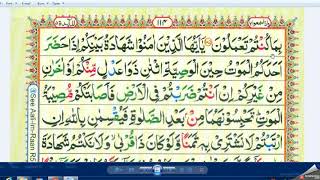 ١١٤
بِمَا كُنْتُمْ تَعْمَلُوْنَ يٰٓاَيُّهَا الَّذِيْنَ اٰمَنُوْا شَهَادَةُ بَيْنِكُمْ اِذَا حَضَرَ
اَحَدَكُمُ الْمَوْتُ حِيْنَ الْوَصِيَّةِ اثْنٰنِ ذَوَا عَدْلٍ مِّنْكُمْ اَوْ اٰخَرٰنِ
مِنْ غَيْرِكُمْ اِنْ اَنْتُمْ ضَرَبْتُمْ فِى الْاَرْضِ فَاَصَابَتْكُمْ مُّصِيْبَةُ
الْمَوْتِ تَحْبِسُوْنَهُمَا مِنْۢ بَعْدِ الصَّلٰوةِ فَيُقْسِمٰنِ بِاللّٰهِ اِنِ
ارْتَبْتُمْ لَا نَشْتَرِىْ بِهٖ ثَمَنًا وَّلَوْ كَانَ ذَا قُرْبٰى وَلَا نَكْتُمُ شَهَادَةَ
See Aali-in-Raan R5